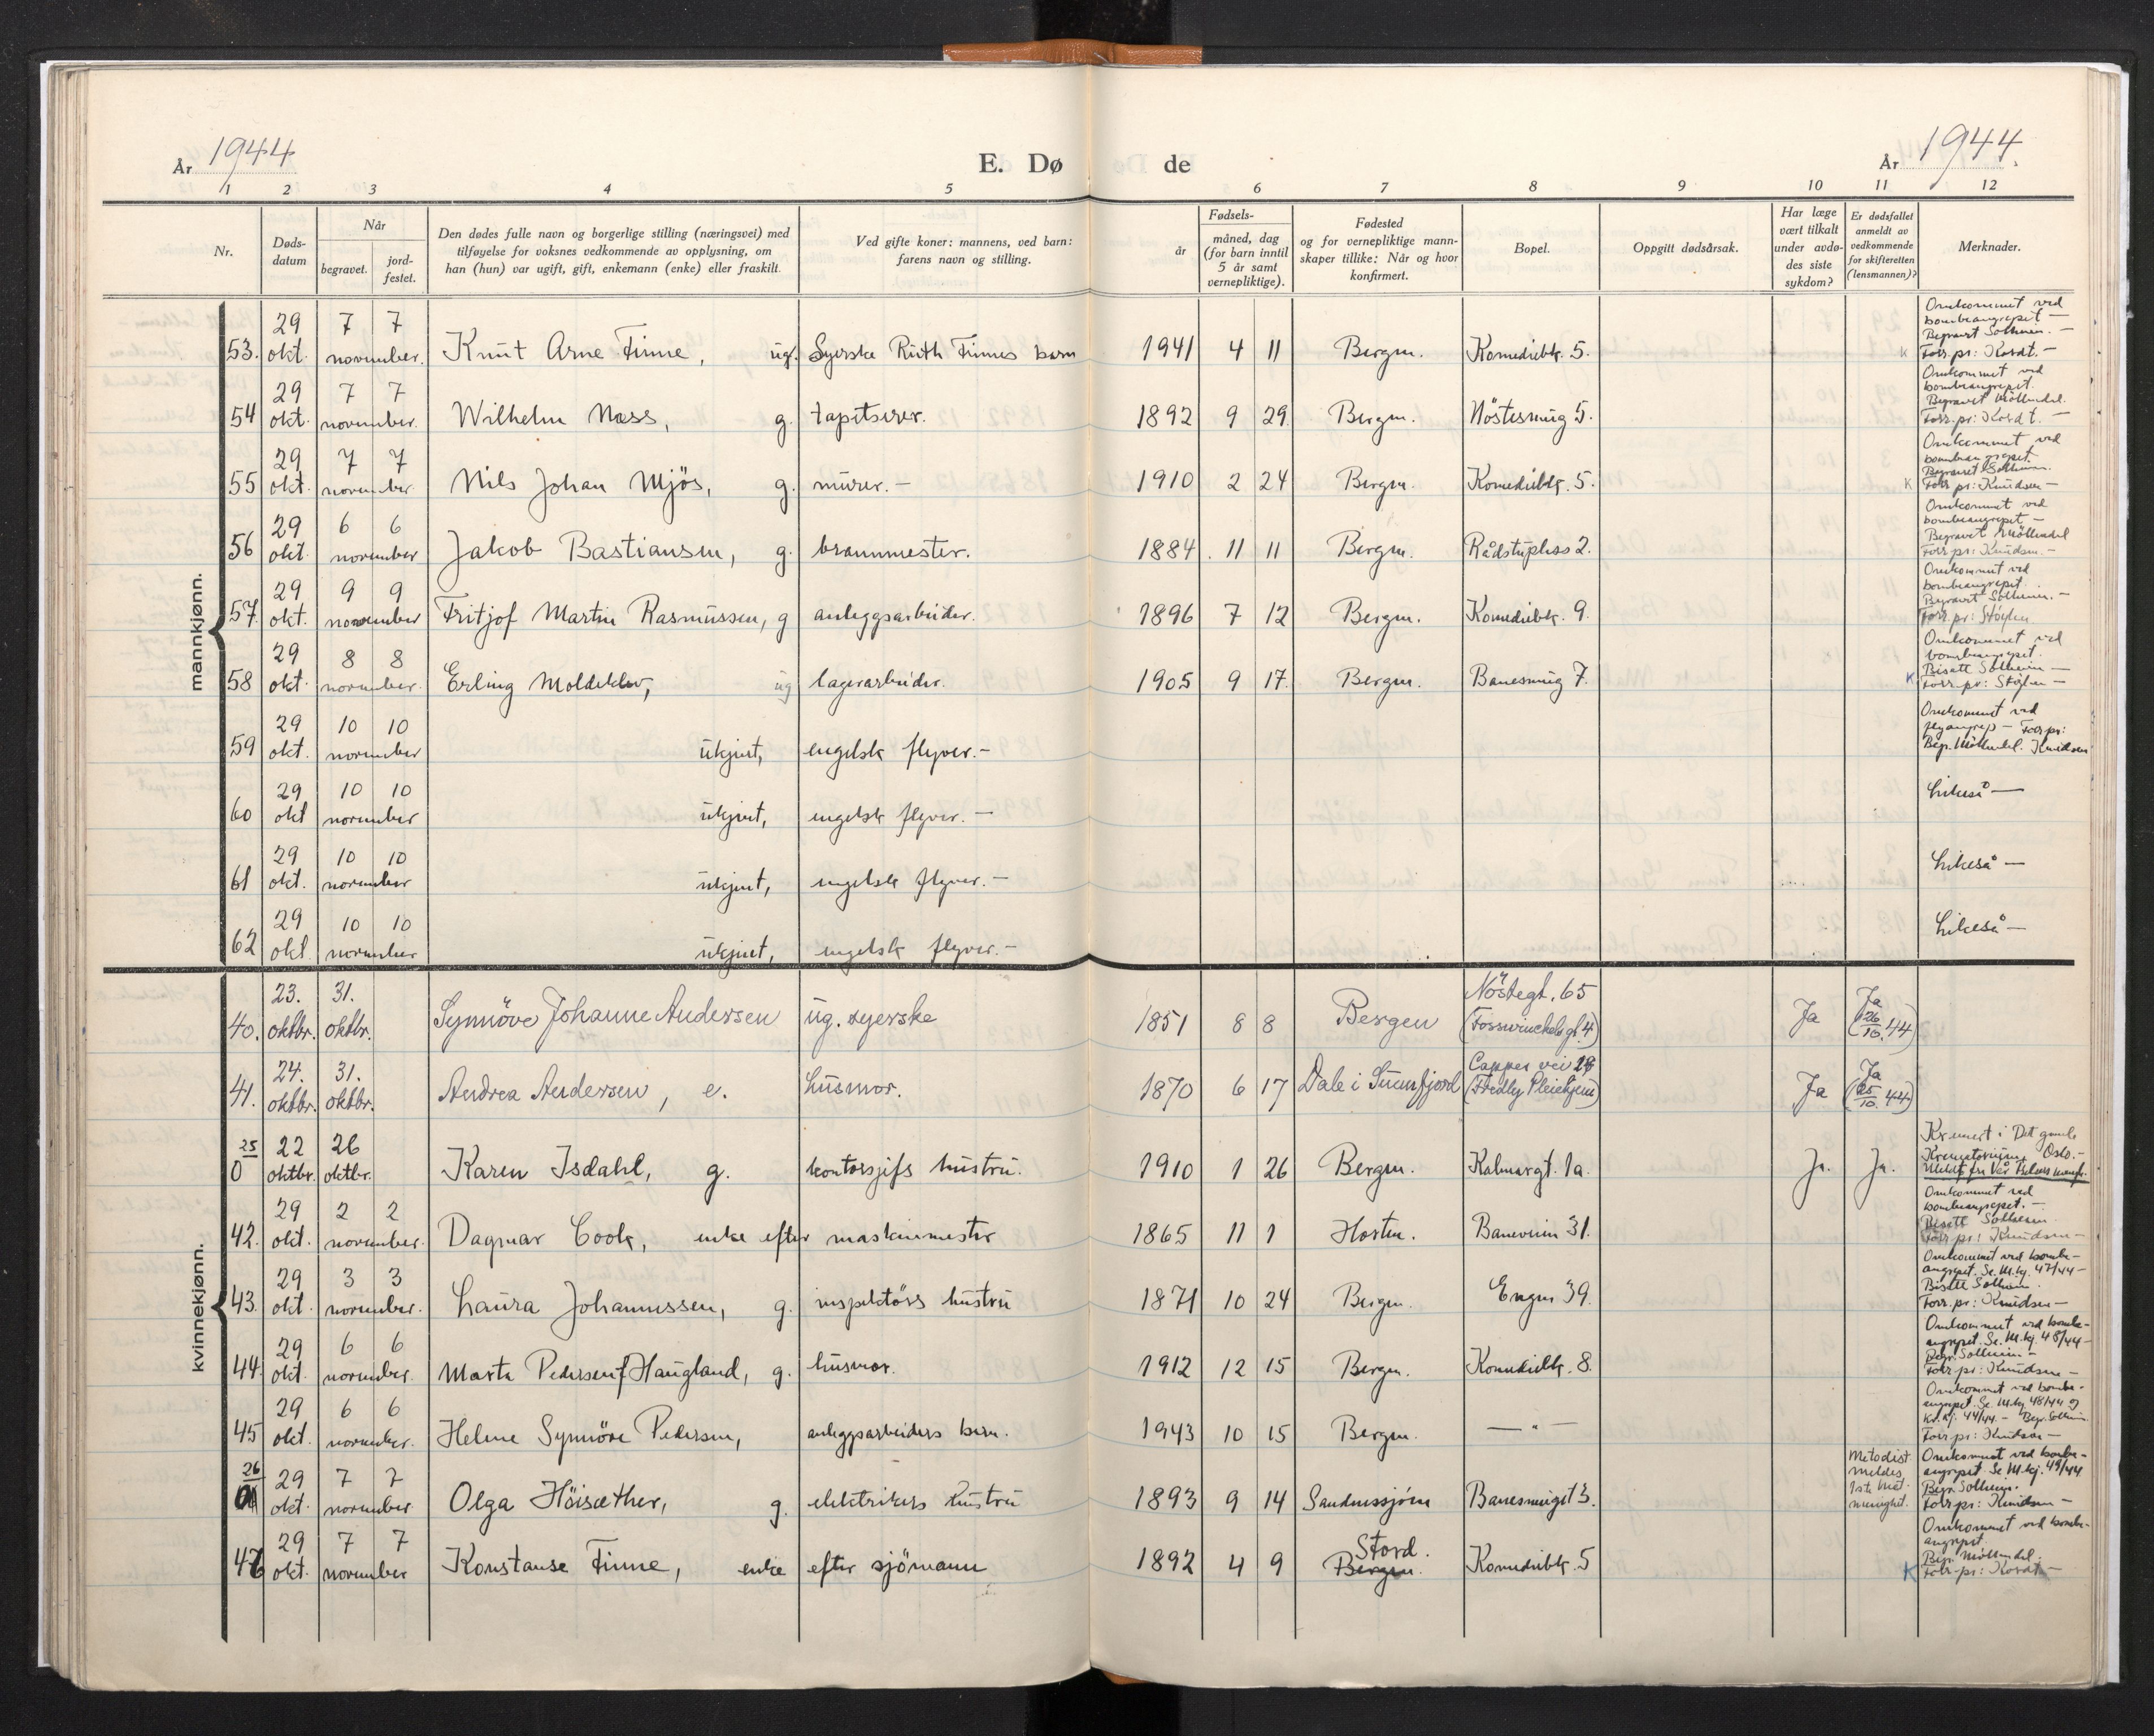 År 1944
E. Dø de
År 1944.
1 2 3 4 5 6 7 8 9 10 11 12
Nr.
Døds-
datum
Når
begravet.
jord-
festet.
Den dødes fulle navn og borgerlige stilling (næringsvei) med
tilføyelse for voksnes vedkommende av opplysning, om
han (hun) var ugift, gift, enkemann (enke) eller fraskilt.
Ved gifte koner: mannens, ved barn:
farens navn og stilling.
Fødsels-
år
måned, dag
(for barn inntil
5 år samt
vernepliktige).
Fødested
og for vernepliktige mann-
skaper tillike: Når og hvor
konfirmert.
Bopel.
Oppgitt dødsårsak.
Har læge
vært tilkalt
under avdø-
des siste
sykdom?
Er dødsfallet
anmeldt av
vedkommende
for skifteretten
(lensmannen)?
Merknader.
mannkjønn.
29 7 7
53. okt. november. Knut Arne Finne, ug. Syerske Ruth Finnes barn 1941 4 11 Bergen. Komediebk. 5.
Omkommet ved
bombeangrepet —
Begravet Solheim. —
Forr. pr: Kordt. —
29 7 7
54 okt. november. Wilhelm Næss, g. tapetserer. 1892 9 29 Bergen. Nöstesmug 5.
Omkommet ved
bombeangrepet.
Begravet Möllendal.
Forr. pr: Kordt. —
29 7 7
55 okt. november. Nils Johan Mjös, g. murer. — 1910 2 24 Bergen. Komediebk. 5.
Omkommet ved
bombeangrepet.
Begravet Solheim.
K Forr. pr: Knudsen —
29 6 6
56 okt. november Jakob Bastiansen, g. brannmester. 1884. 11 11 Bergen. Rådstuplass 2.
Omkommet ved
bombeangrepet —
Begravet Möllendal
Forr. pr: Knudsen. —
29 9 9
57. okt. november Fritjof Martin Rasmussen, g anleggsarbeider. 1896 7 12 Bergen. Komediebk. 9.
Omkommet ved
bombeangrepet.
Begravet Solheim. —
Forr. pr: Støylen
29 8 8
58 okt. november. Erling Moldeklev, ug lagerarbeider. 1905 9 17. Bergen. Banesmug 7.
Omkommet ved
bombeangrepet.
Bisatt Solheim —
K Forr. pr: Støylen —
29 10 10
59 okt. november ukjent, engelsk flyver. —
Omkommet ved
flyangrep — Forr pr:
Begr. Möllendal. Knudsen
29 10 10
60 okt november ukjent, engelsk flyver. — Likeså —
29 10 10
61 okt. november ukjent, engelsk flyver. — Likeså —
29 10 10
62 okt november ukjent, engelsk flyver. — Likeså —
kvinnekjønn.
23. 31. Nöstegt. 65 Ja
40. oktbr. oktbr. Synnöve Johanne Andersen ug. syerske 1851 8 8 Bergen (Fosswinckels gt. 4) Ja (26/10. 44)
24. 31. Cappes vei 28 Ja
41. oktbr. oktbr. Andrea Andersen, e. husmor. 1870 6 17 Dale i Sunnfjord (Fredly Pleiehjem) Ja (25/10. 44)
25 22 26
0 oktbr. oktbr. Karen Isdahl, g. kontorsjefs hustru. 1910 1 26 Bergen. Kalmargt. 1a. Ja. Ja.
Kremert i Det gamle
Krematorium, Oslo. —
Meldt fra Vår Frelsers menigh.
29 2 2
42. okt. november. Dagmar Cook, enke efter maskinmester 1865 11 1 Horten. Baneveien 31.
Omkommet ved
bombeangrepet. —
Bisatt Solheim
Forr pr: Knudsen —
29 3 3
43. okt. november. Laura Johannessen, g. inspektörs hustru 1871 10 24 Bergen. Engen 39.
Omkommet ved bombe-
angrepet. Se. M.kj. 47/44 —
Bisatt Solheim.
Forr. pr: Knudsen —
29 6 6
44. okt. november. Marta Pedersen f Haugland, g. husmor. 1912 12 15 Bergen. Komediebk. 8.
Omkommet ved bombe-
angrepet. Se. M.kj. 48/44 —
Begr. Solheim —
Forr. pr: Knudsen —
29 6 6
45 okt. november. Helene Synnöve Pedersen, anleggsarbeiders barn. 1943 10 15 Bergen. — " —
Omkommet ved bombe-
angrepet. Se. M.kj. 48/44 og
Kv.kj. 44/44. — Begr. Solheim.
Forr pr: Knudsen —
26 29 7 7
0 okt. november Olga Höisæther, g. elektrikers hustru 1893 9 14 Sandnessjøen Banesmuget 3.
Metodist
meldes
1ste Met.
menighet.
Omkommet ved bombe-
angrepet. Se M.kj. 49/44
Begr. Solheim.
Forr pr: Knudsen —
29 7 7 Stord.
46 okt. november Konstanse Finne, enke efter sjömann 1892 4 9 Bergen. Komediebk. 5
Omkommet ved bombe-
angrepet.
Begr. Möllendal.
K Forr. pr: Kordt —